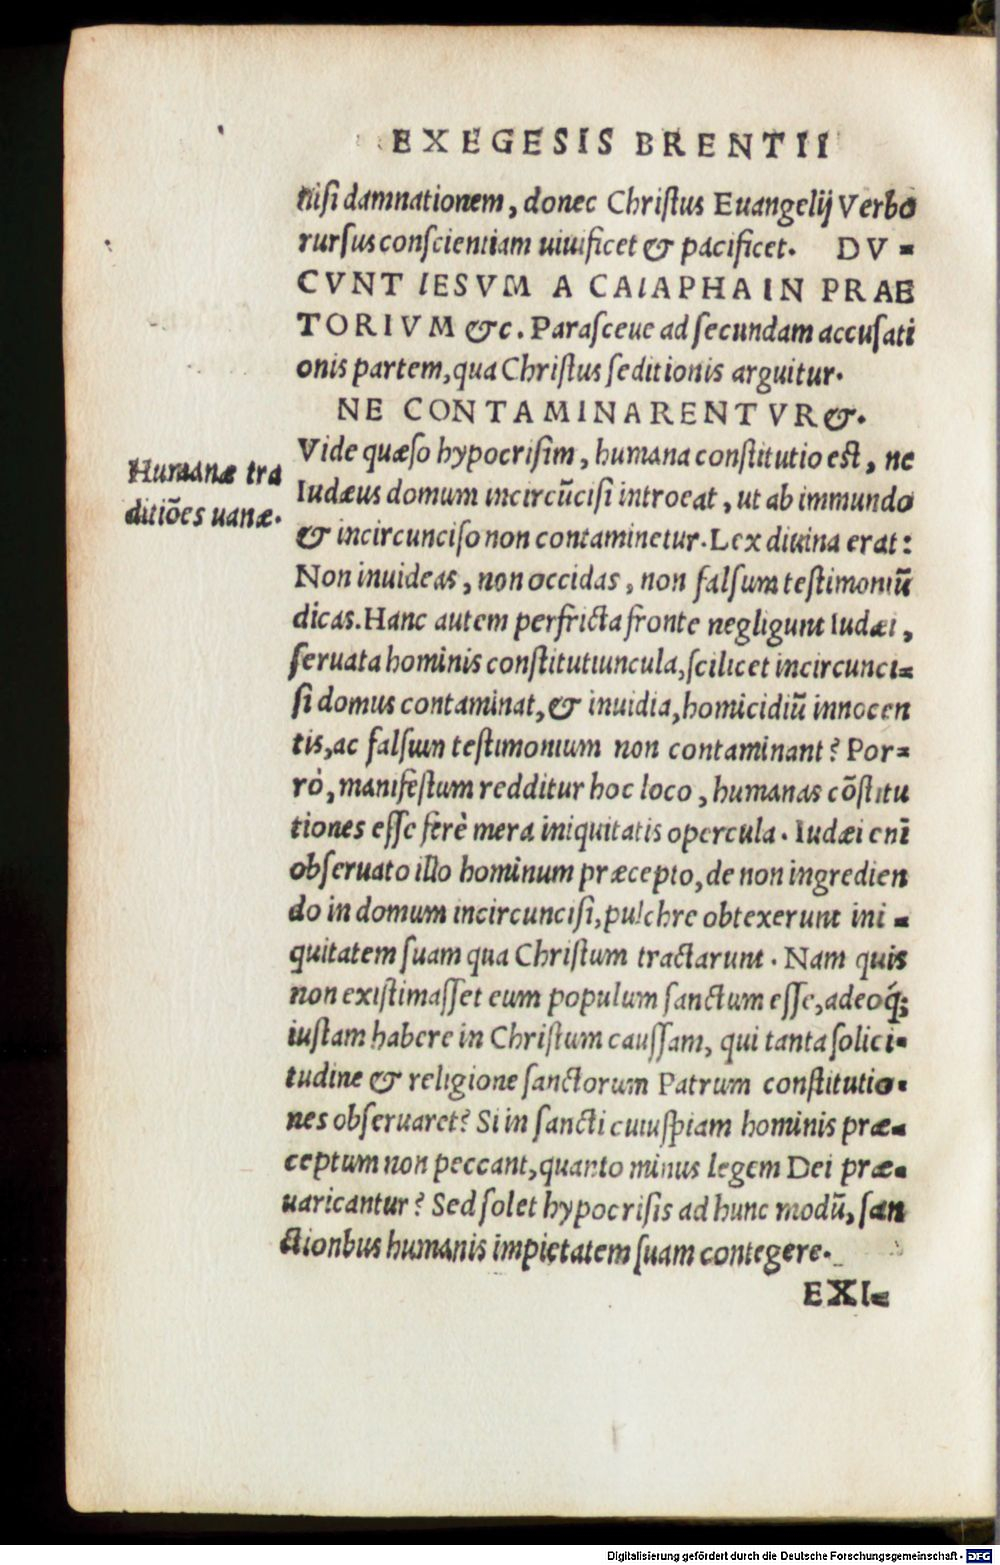 EXEGESIS BRENTII
nisi damnationem, donec Christus Euangelij Verbo
rursus conscientiam uiuificet & pacificet. DV=
CVNT IESVM A CAIAPHA IN PRAE
TORIVM &c. Parasceue ad secundam accusati
onis partem, qua Christus seditionis arguitur.
NE CONTAMINARENTVR &.
Vide quæso hypocrisim, humana constitutio est, ne
Iudæus domum incircũcisi introeat, ut ab immundo
& incircunciso non contaminetur. Lex diuina erat:
Non inuideas, non occidas, non falsum testimoniũ
dicas. Hanc autem perfricta fronte negligunt Iudæi,
seruata hominis constitutiuncula, scilicet incircunci=
si domus contaminat, & inuidia, homicidiũ innocen
tis, ac falsum testimonium non contaminant? Por=
rò, manifestum redditur hoc loco, humanas cõstitu
tiones esse ferè mera iniquitatis opercula. Iudæi enĩ
obseruato illo hominum præcepto, de non ingredien
do in domum incircuncisi, pulchre obtexerunt ini=
quitatem suam qua Christum tractarunt. Nam quis
non existimasset eum populum sanctum esse, adeoq́;
iustam habere in Christum caussam, qui tanta solici=
tudine & religione sanctorum Patrum constitutio=
nes obseruaret? Si in sancti cuiuspiam hominis præ=
ceptum non peccant, quanto minus legem Dei præ=
uaricantur? Sed solet hypocrisis ad hunc modũ, san
ctionbus humanis impietatem suam contegere.
EXI=
Humanæ tra
ditiões uanæ.
Digitalisierung gefördert durch die Deutsche Forschungsgemeinschaft - DFG